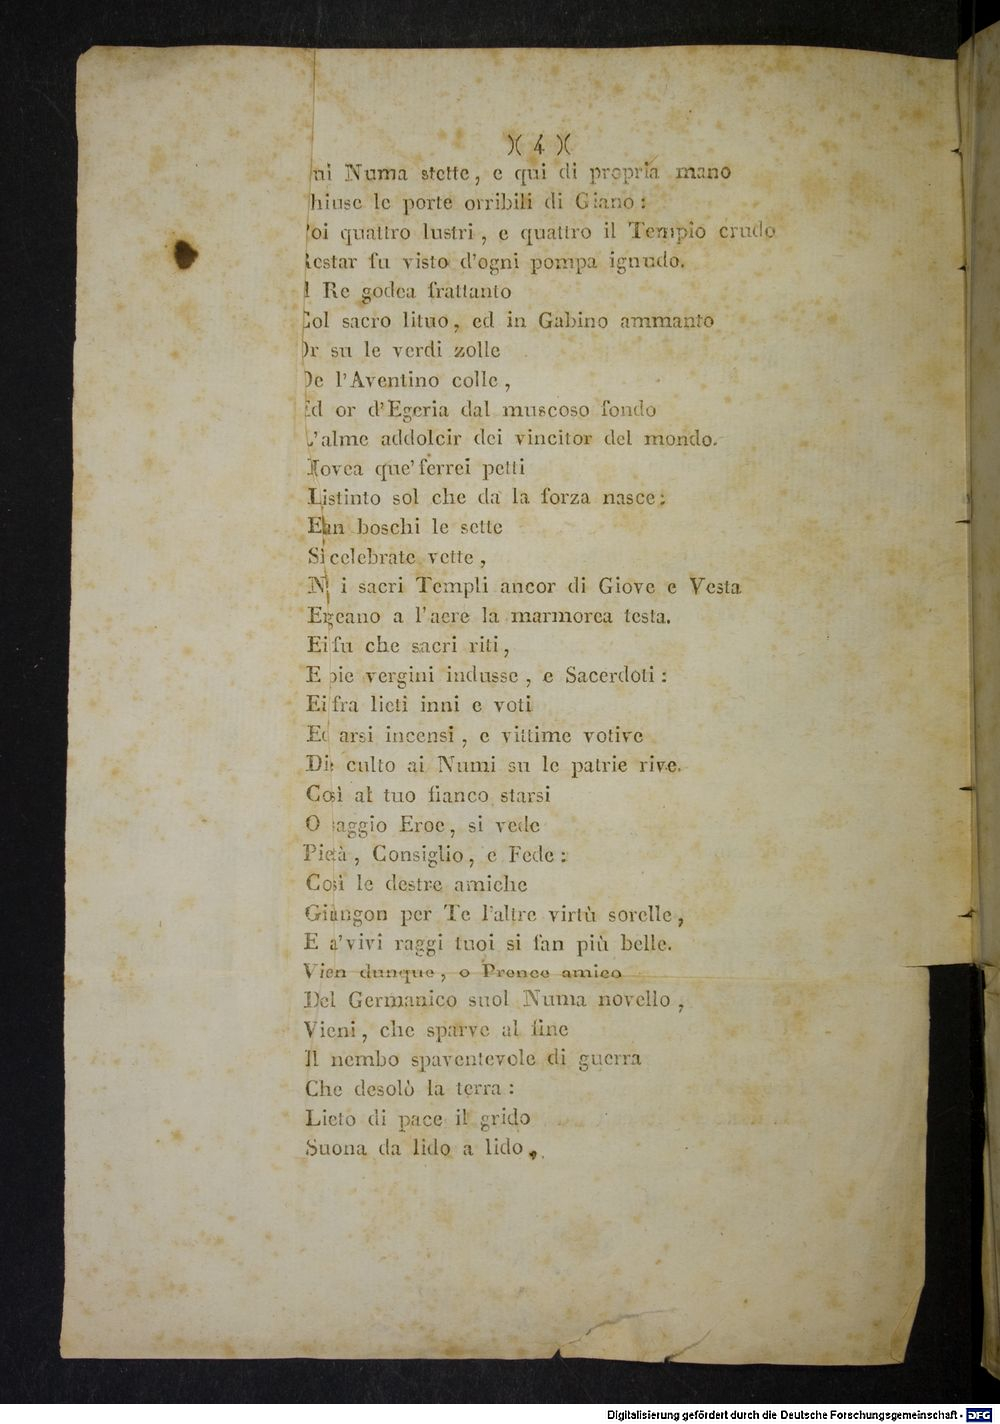 )( 4 )(
ui Numa stette, e qui di propria mano
hiuse le porte orribili di Giano:
oi quattro lustri, e quattro il Tempio crudo
Restar fu visto d'ogni pompa ignudo.
l Re godea frattanto
Col sacro lituo, ed in Gabino ammanto
Or su le verdi zolle
De l'Aventino colle,
Ed or d'Egeria dal muscoso fondo
L'alme addolcir dei vincitor del mondo.
Movea que' ferrei petti
Listinto sol che da la forza nasce:
Ean boschi le sette
Si celebrate vette,
N i sacri Templi ancor di Giove e Vesta
Ergeano a l'aere la marmorea testa.
Ei fu che sacri riti,
E pie vergini indusse, e Sacerdoti:
Ei fra lieti inni e voti
Ed arsi incensi, e vittime votive
Diè culto ai Numi su le patrie rive.
Così al tuo fianco starsi
O saggio Eroe, si vede
Pietà, Consiglio, e Fede:
Così le destre amiche
Giungon per Te l'altre virtù sorelle,
E a' vivi raggi tuoi si fan più belle.
Vien dunque, o Prence amico
Del Germanico suol Numa novello,
Vieni, che sparve al fine
Il nembo spaventevole di guerra
Che desolò la terra:
Lieto di pace il grido
Suona da lido a lido,
Digitalisierung gefördert durch die Deutsche Forschungsgemeinschaft - DFG